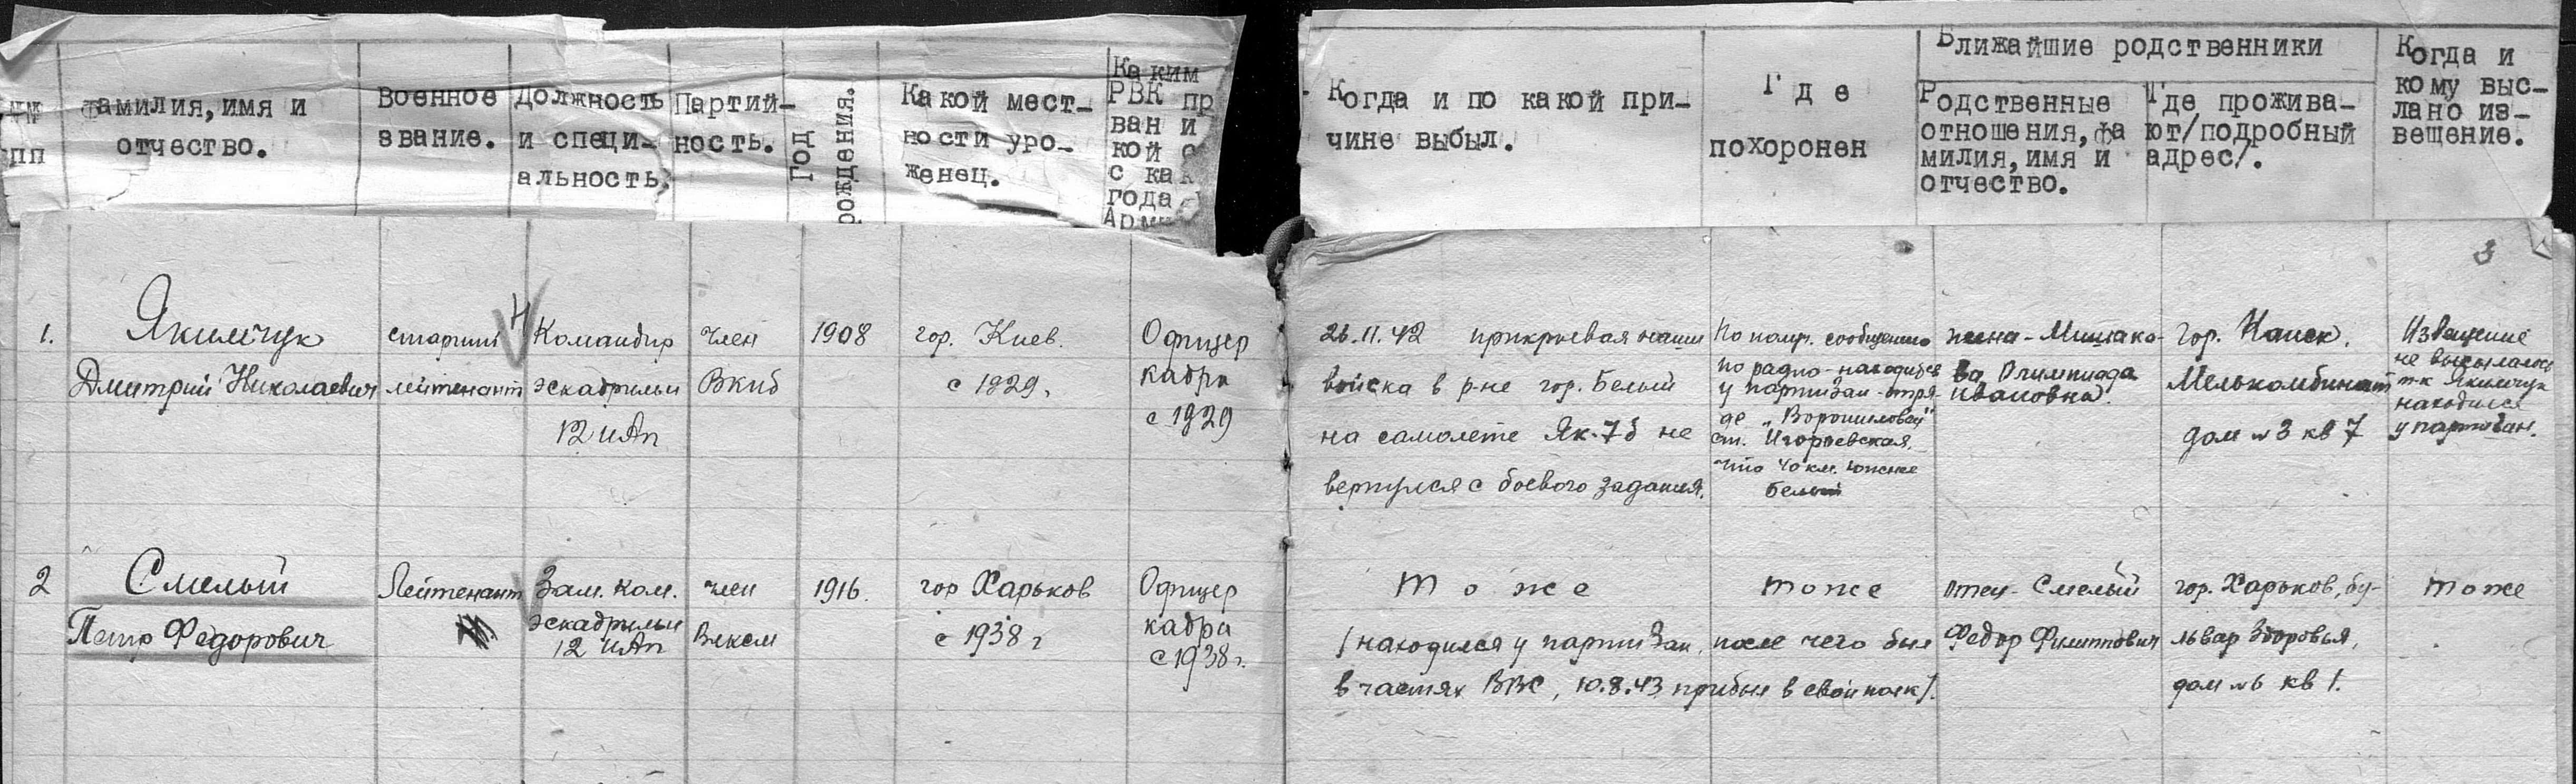 №№ пп
Фамилия, имя и отчество.
Военное звание.
Должность и специ-
альность.
Партий-
ность.
Год рождения.
Какой мест-
ности уро-
женец.
Каким
РВК пр
ван и
кой
с как
года
Арми
Когда и по какой при-
чине выбыл.
Где
похоронен
Ближайшие родственники
Родственные
отношения, фа
милия, имя и
отчество.
Где прожива-
ют/подробный
адрес/.
Когда и
кому выс-
лано из-
вещение.
3
1.
Якимчук
Дмитрий Николаевич
старший
лейтенант
Командир
эскадрильи
12 иАп
член
ВКПб
1908
гор. Киев.
с 1929.
Офицер
кадра
с 1929
26.11.42 прикрывая наши
войска в р-не гор. Белый
на самолете Як-7б не
вернулся с боевого задания.
По получ. сообщению
по радио - находится
у партизан - отря-
де „Ворошиловец"
ст. Игорьевская.
что 40 км. южнее
Белый
жена - Мишако-
ва Олимпиада
Ивановна.
гор. Канск.
Мелькомбинат
дом № 3 кв 7
Извещение
не высылалось
т-к Якимчук
находился
у партизан.
2
Смелый
Петр Федорович
Лейтенант
Зам. Ком.
эскадрильи
12 иАп
член
Влксм
1916.
гор Харьков
с 1938 г
Офицер
кадра
с 1938 г.
то же
/находился у партизан, после чего был
в частях ВВС, 10.8.43 прибыл в свой полк/.
тоже
отец - Смелый
Федор Филиппович
гор. Харьков, бу-
львар Здоровья,
дом № 6 кв 1.
тоже